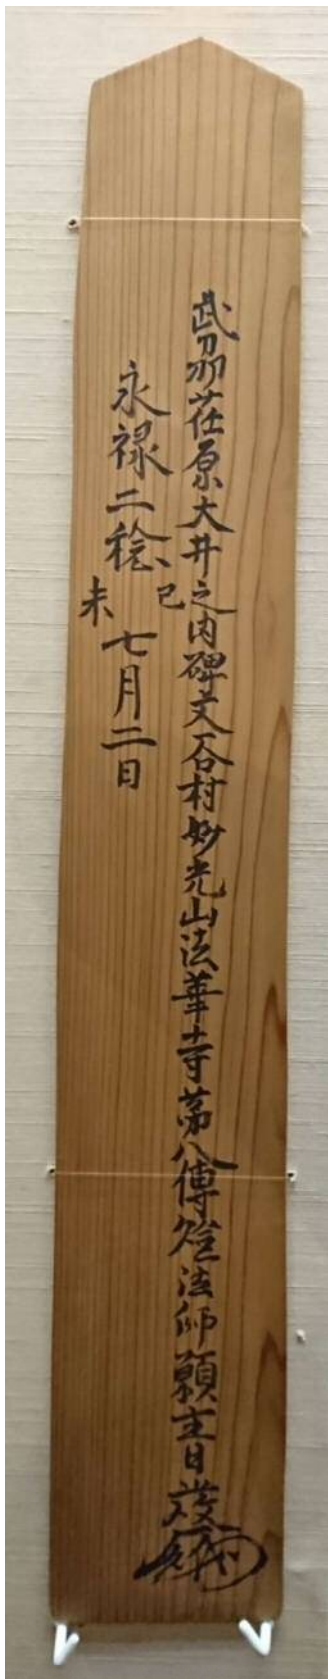 武刕荏原大井之内碑文谷村妙光山法華寺第八傳燈法師願主日護
永禄二稔己未七月二日